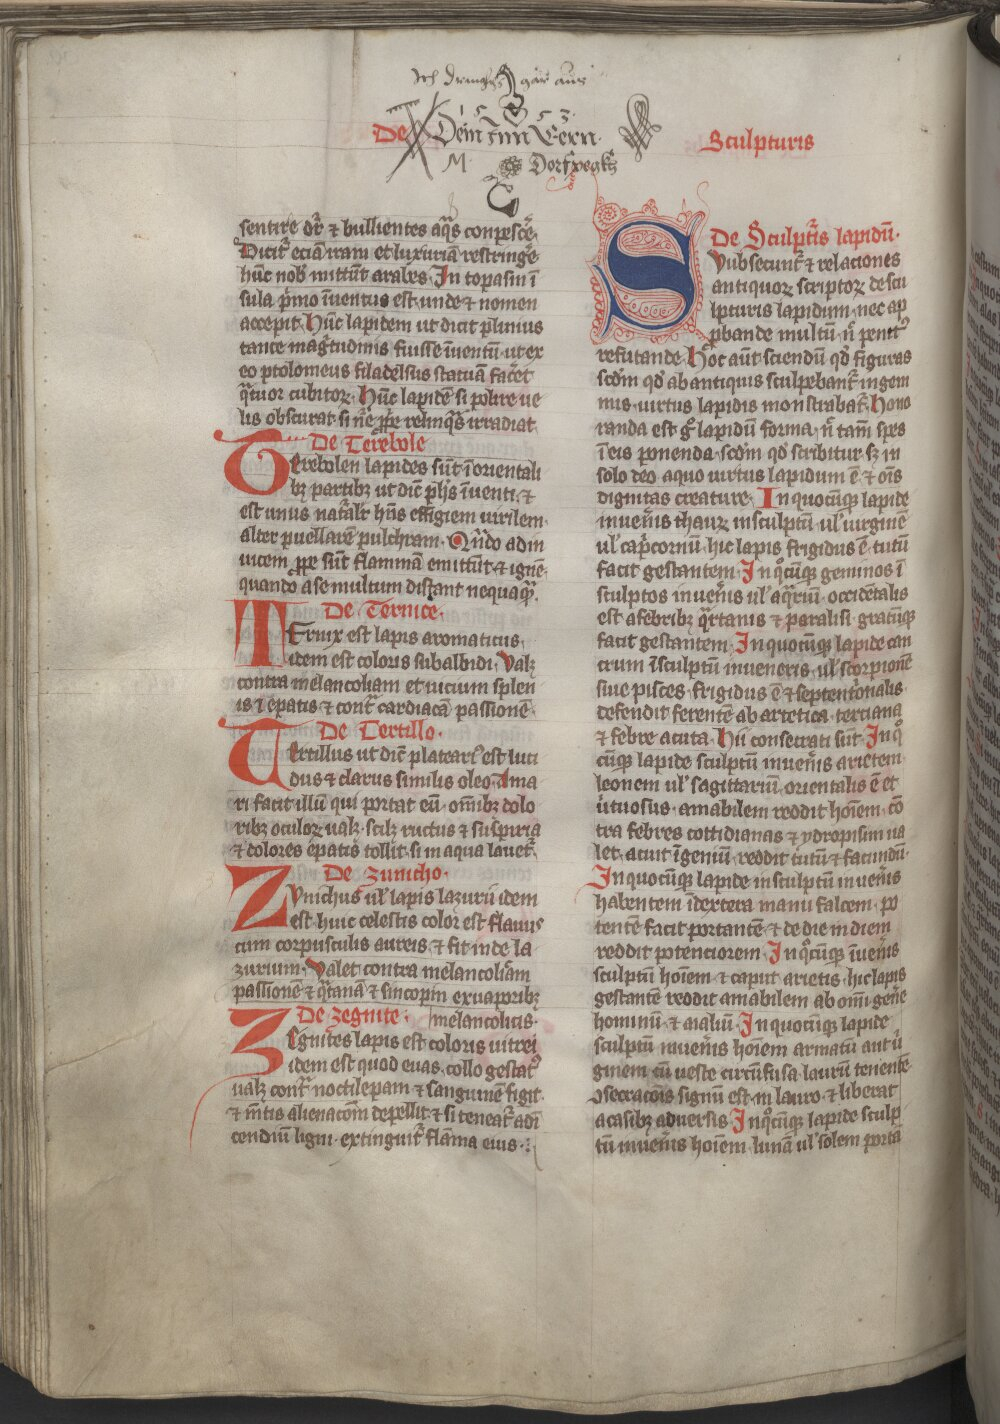 De Sculpturis
1 5 5 3
Dein inn Eern
M
sentire dr̄ ⁊ bullientes aq̄s conpesc̄e.
Dicit᷑ eciā iram et luxuriā restringe
hūc nob̄ mittūt arabes. In topasin ī
sula p̄mo īuentus est. unde ⁊ nomen
accepit. Hūc lapidem ut dicit plinius
tante mag̅tudinis fuisse īuentū. ut ex
eo ptolomeus filadelfus statuā fac̄et
q̄tuor cubitoꝝ. Hūc lapidē si polire ue
lis obscurat. si n̄c ꝓp̄e relinq̄s irradiat
De Terebole
Terebolen lapides sūt ī orientali
bꝫ partibꝫ ut dic̄ phꝰs īuenti. ⁊
est unus nat̄alit̄ hn̄s effigiem uirilem.
Alter puellarē pulchram. Qn̄do ad in
uicem ꝓpe sūt flammā emittūt ⁊ ignē.
quando a se multum distant nequaq̄.
De Ternice.
Ternix est lapis aromaticus.
idem est coloris subalbidi. Valꝫ
contra melancoliam et uicium splen
is ⁊ epatis ⁊ cont̄ cardiacā passionē.
De Tertillo.
Tertillus ut dic̄ plateariꝰ est luci
dus ⁊ clarus similis oleo. Ama
ri facit illū qui portat eū. om̄ibꝫ dolo
ribꝫ oculoꝝ ualꝫ. scilꝫ ructus ⁊ suspiria
⁊ dolores epatis tollit. si in aqua lauet᷑.
De Zunicho.
Zvnichus ul̄ lapis lazurii idem
est huic celestis color est flauus
cum corpusculis aureis. ⁊ fit inde la
zurium. Valet contra melancoliam
passionē ⁊ q̄rtanā ⁊ sincopin ex uaporibꝫ
melancolicis.
De Zegnite.
Zegnites lapis est coloris uitrei
idem est quod euas. collo gestatꝰ
ualꝫ cont̄ noctilepam ⁊ sanguinē figit
⁊ m̄tis alienacōm depellit. ⁊ si teneat᷑ ad ī
cendiū ligni. extinguit᷑ flāma eius.
De Sculpt̄is lapidū.
Svbsecunt᷑ ⁊ relaciones
antiquoꝝ scriptoꝝ de scu
lpturis lapidum. nec ap
ꝓbande multū. n̄ penitꝰ
refutande. Hoc aūt sciendū qd̓ figuras
scd̄m qd̓ ab antiquis sculpebant᷑ in gem
mis. uirtus lapidis monstrabat᷑. Hono
randa est g̊ lapidū forma. n̄ tam̄ spes
ī eis ponenda. scd̄m qd̓ scribitur. sꝫ in
solo deo a quo uirtus lapidum ē ⁊ om̄s
dignitas creature. In quocūqꝫ lapide
inuen̄is thauꝝ insculptū ul̄ uirginē
ul̄ cap̄cornū. hic lapis frigidus ē. tutū
facit gestantem. In q̊cūqꝫ geminos ī
sculptos inuen̄is ul̄ aq̄riū. occidētalis
est a febribꝫ q̄rtanis ⁊ paralisi. gratūqꝫ
facit gestantem. In quocūqꝫ lapide can
crum īsculptū inueneris. ul̄ scorpionē
siue pisces. frigidus ē ⁊ septent̄onalis.
defendit ferentē ab artetica. terciana
⁊ febre acuta. Hii consecrati sūt. In q̊
cūqꝫ lapide sculptū inuen̄is arietem.
leonem ul̄ sagittariū. orientalis ē et
uirtuosus. amabilem reddit hoīem. cō
tra febres cottidianas ⁊ ydropisim ua
let. acuit īgeniū. reddit tutū ⁊ facundū.
In quocūqꝫ lapide insculptū inuen̄is
habentem ī dextera manu falcem. po
tentē facit portantē. ⁊ de die in diem
reddit potenciorem. In q̊cūqꝫ īuen̄is
sculptū hoīem ⁊ caput arietis. hic lapis
gestantē reddit amabilem ab om̄i gen̄e
hominū ⁊ aīaliū. In quocūqꝫ lapide
sculptū inuen̄is hoīem armatū aut ū
ginem cū ueste circūfusa laurū tenentē.
ꝯsecracōis signū est. in lauro. ⁊ liberat
a casibꝫ aduersis. In q̊cūqꝫ lapide sculp
tū inuen̄is hoīem. lunā ul̄ solem portā